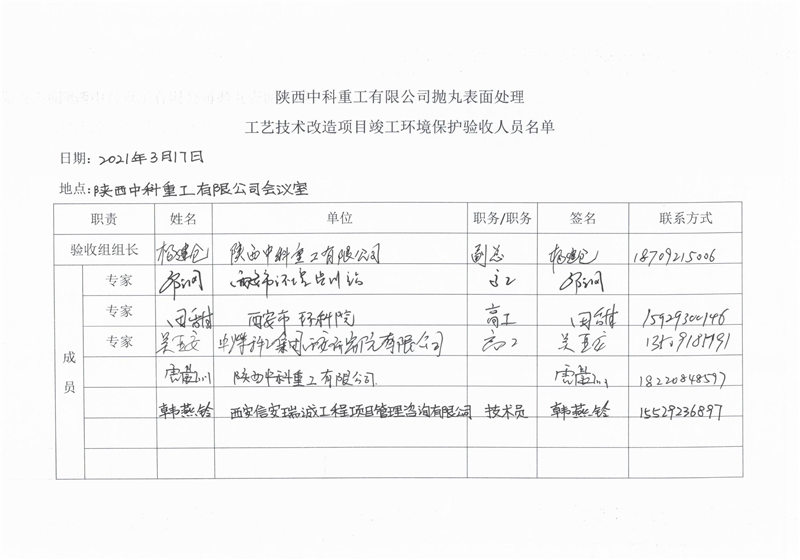 陕西中科重工有限公司抛丸表面处理
工艺技术改造项目竣工环境保护验收人员名单
日期: 2021年3月17日
地点: 陕西中科重工有限公司会议室
职责 姓名 单位 职务/职务 签名 联系方式
验收组组长 杨建仓 陕西中科重工有限公司 副总 杨建仓 18709215006
成员
专家 西安市环境 站
专家 田甜 西安市环科院 高工 田甜 15929300146
专家 吴 中煤科工集团 有限公司 高工 吴
雷 陕西中科重工有限公司 雷 18220848597
韩燕铃 西安信安瑞诚工程项目管理咨询有限公司 技术员 韩燕铃 15529236897